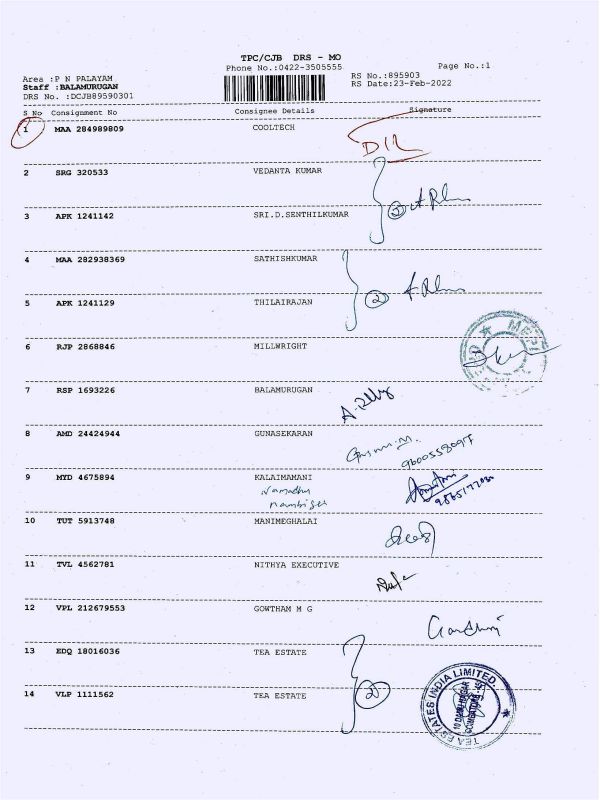 TPC/CJB DRS - MO
Phone No.:0422-3505555
Page No.:1
Area :P N PALAYAM
RS No.:895903
Staff :BALAMURUGAN
RS Date:23-Feb-2022
DRS No. :DCJB89590301
S No Consignment No Consignee Details Signature
1 MAA 284989809 COOLTECH
2 SRG 320533 VEDANTA KUMAR
2
3 APK 1241142 SRI.D.SENTHILKUMAR
4 MAA 282938369 SATHISHKUMAR
2
5 APK 1241129 THILAIRAJAN
6 RJP 2868846 MILLWRIGHT
7 RSP 1693226 BALAMURUGAN
8 AMD 24424944 GUNASEKARAN
9 MYD 4675894 KALAIMAMANI
Namadhu
nambikei
10 TUT 5913748 MANIMEGHALAI
11 TVL 4562781 NITHYA EXECUTIVE
12 VPL 212679553 GOWTHAM M G
13 EDQ 18016036 TEA ESTATE
14 VLP 1111562 TEA ESTATE
TEA ESTATES INDIA LIMITED